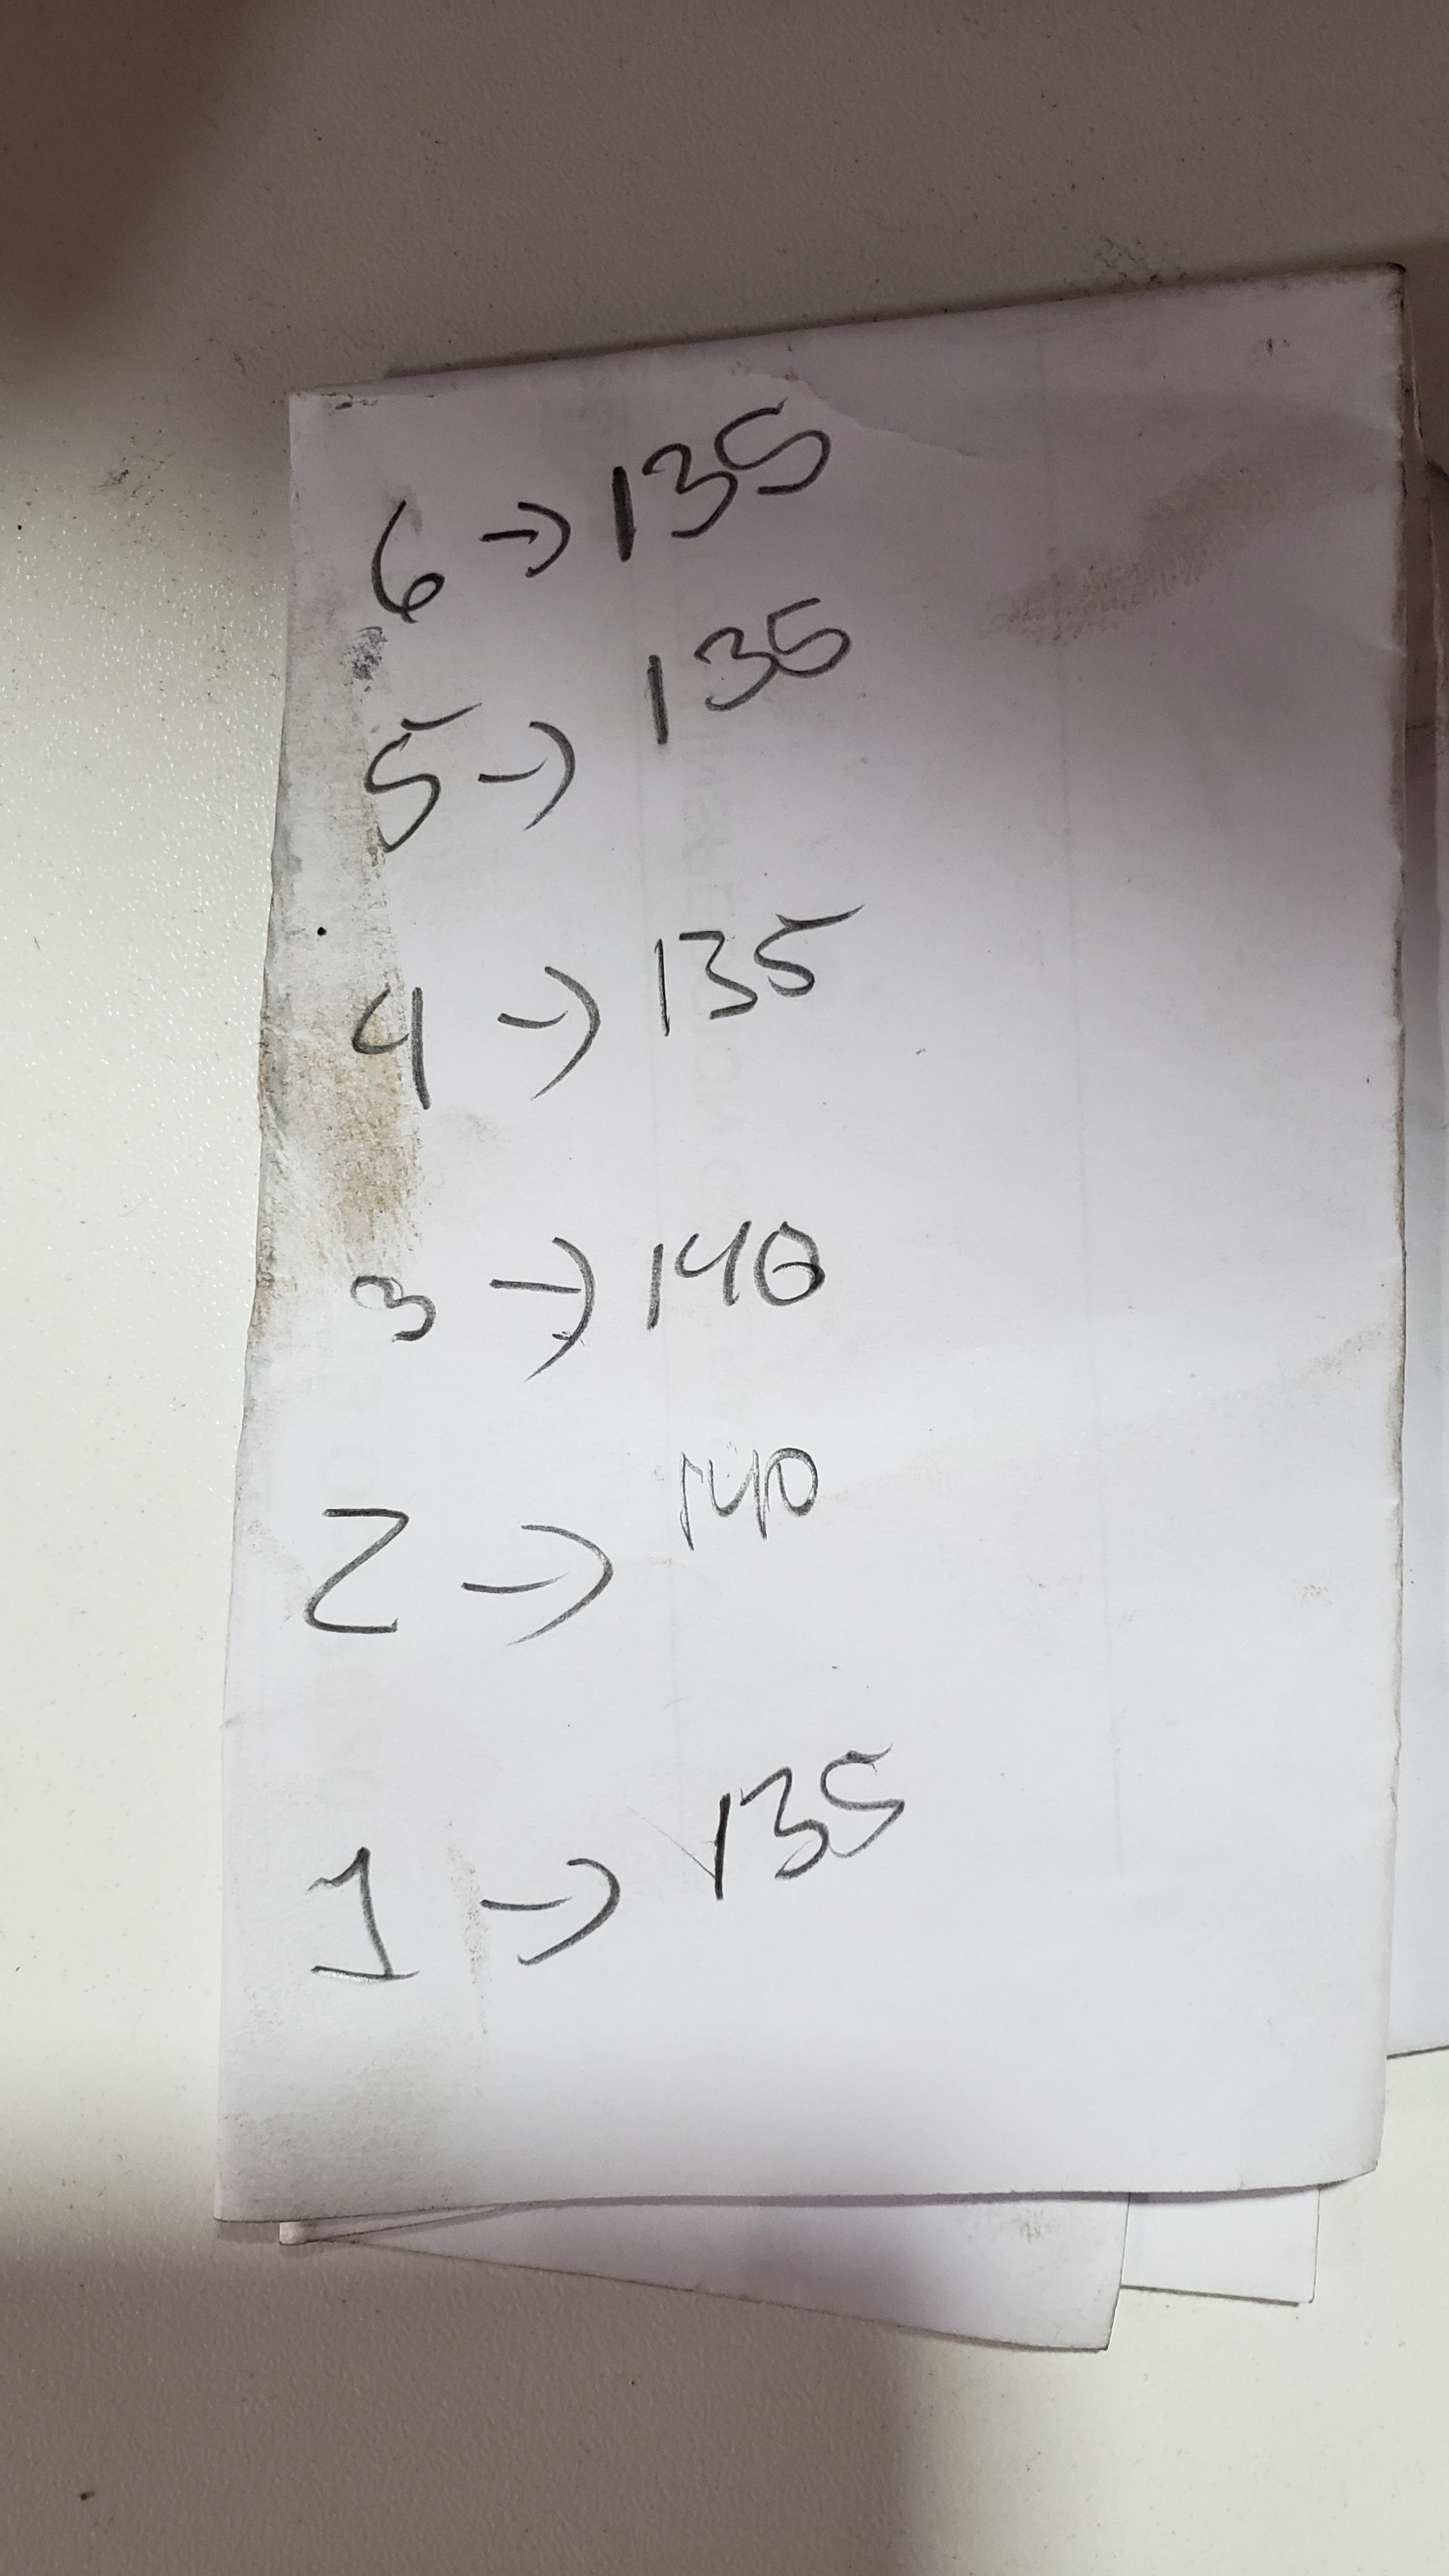 6 → 135
5 → 135
4 → 135
3 → 140
2 → 140
1 → 135